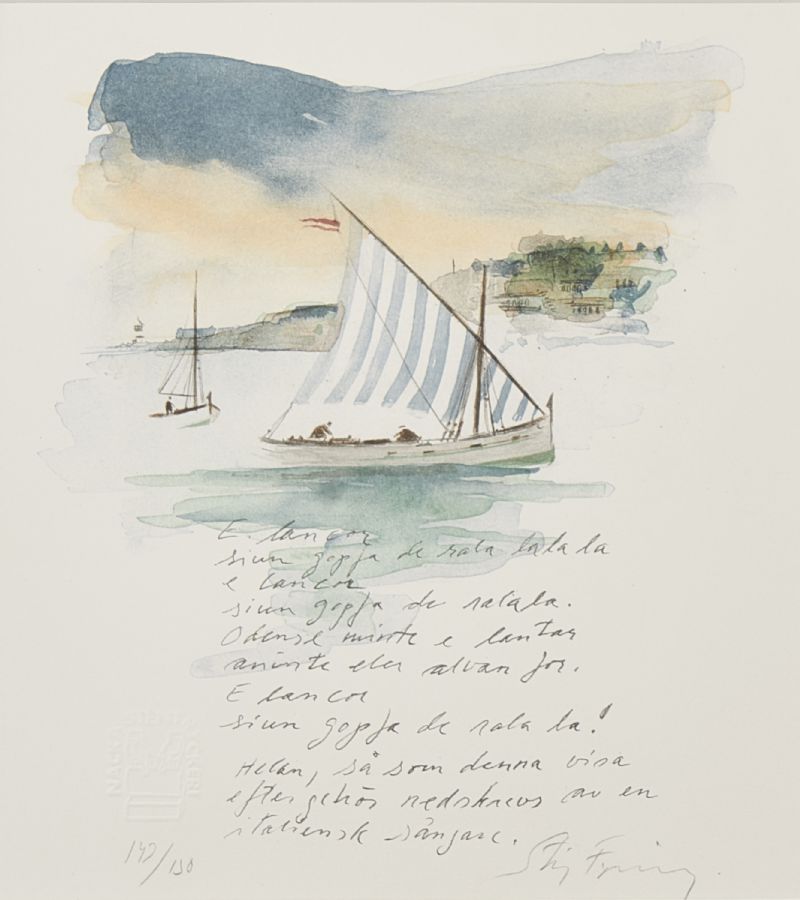 E lancor
siun gopja de rala lalala
e lancor
siun gopja de ralala.
Odense minte e lantar
aninte eler alvan jor.
E lancor
siun gopja de rala la!
Helan, så som denna visa
efter gehör nedskrevs av en
italiensk sångare.
142/150